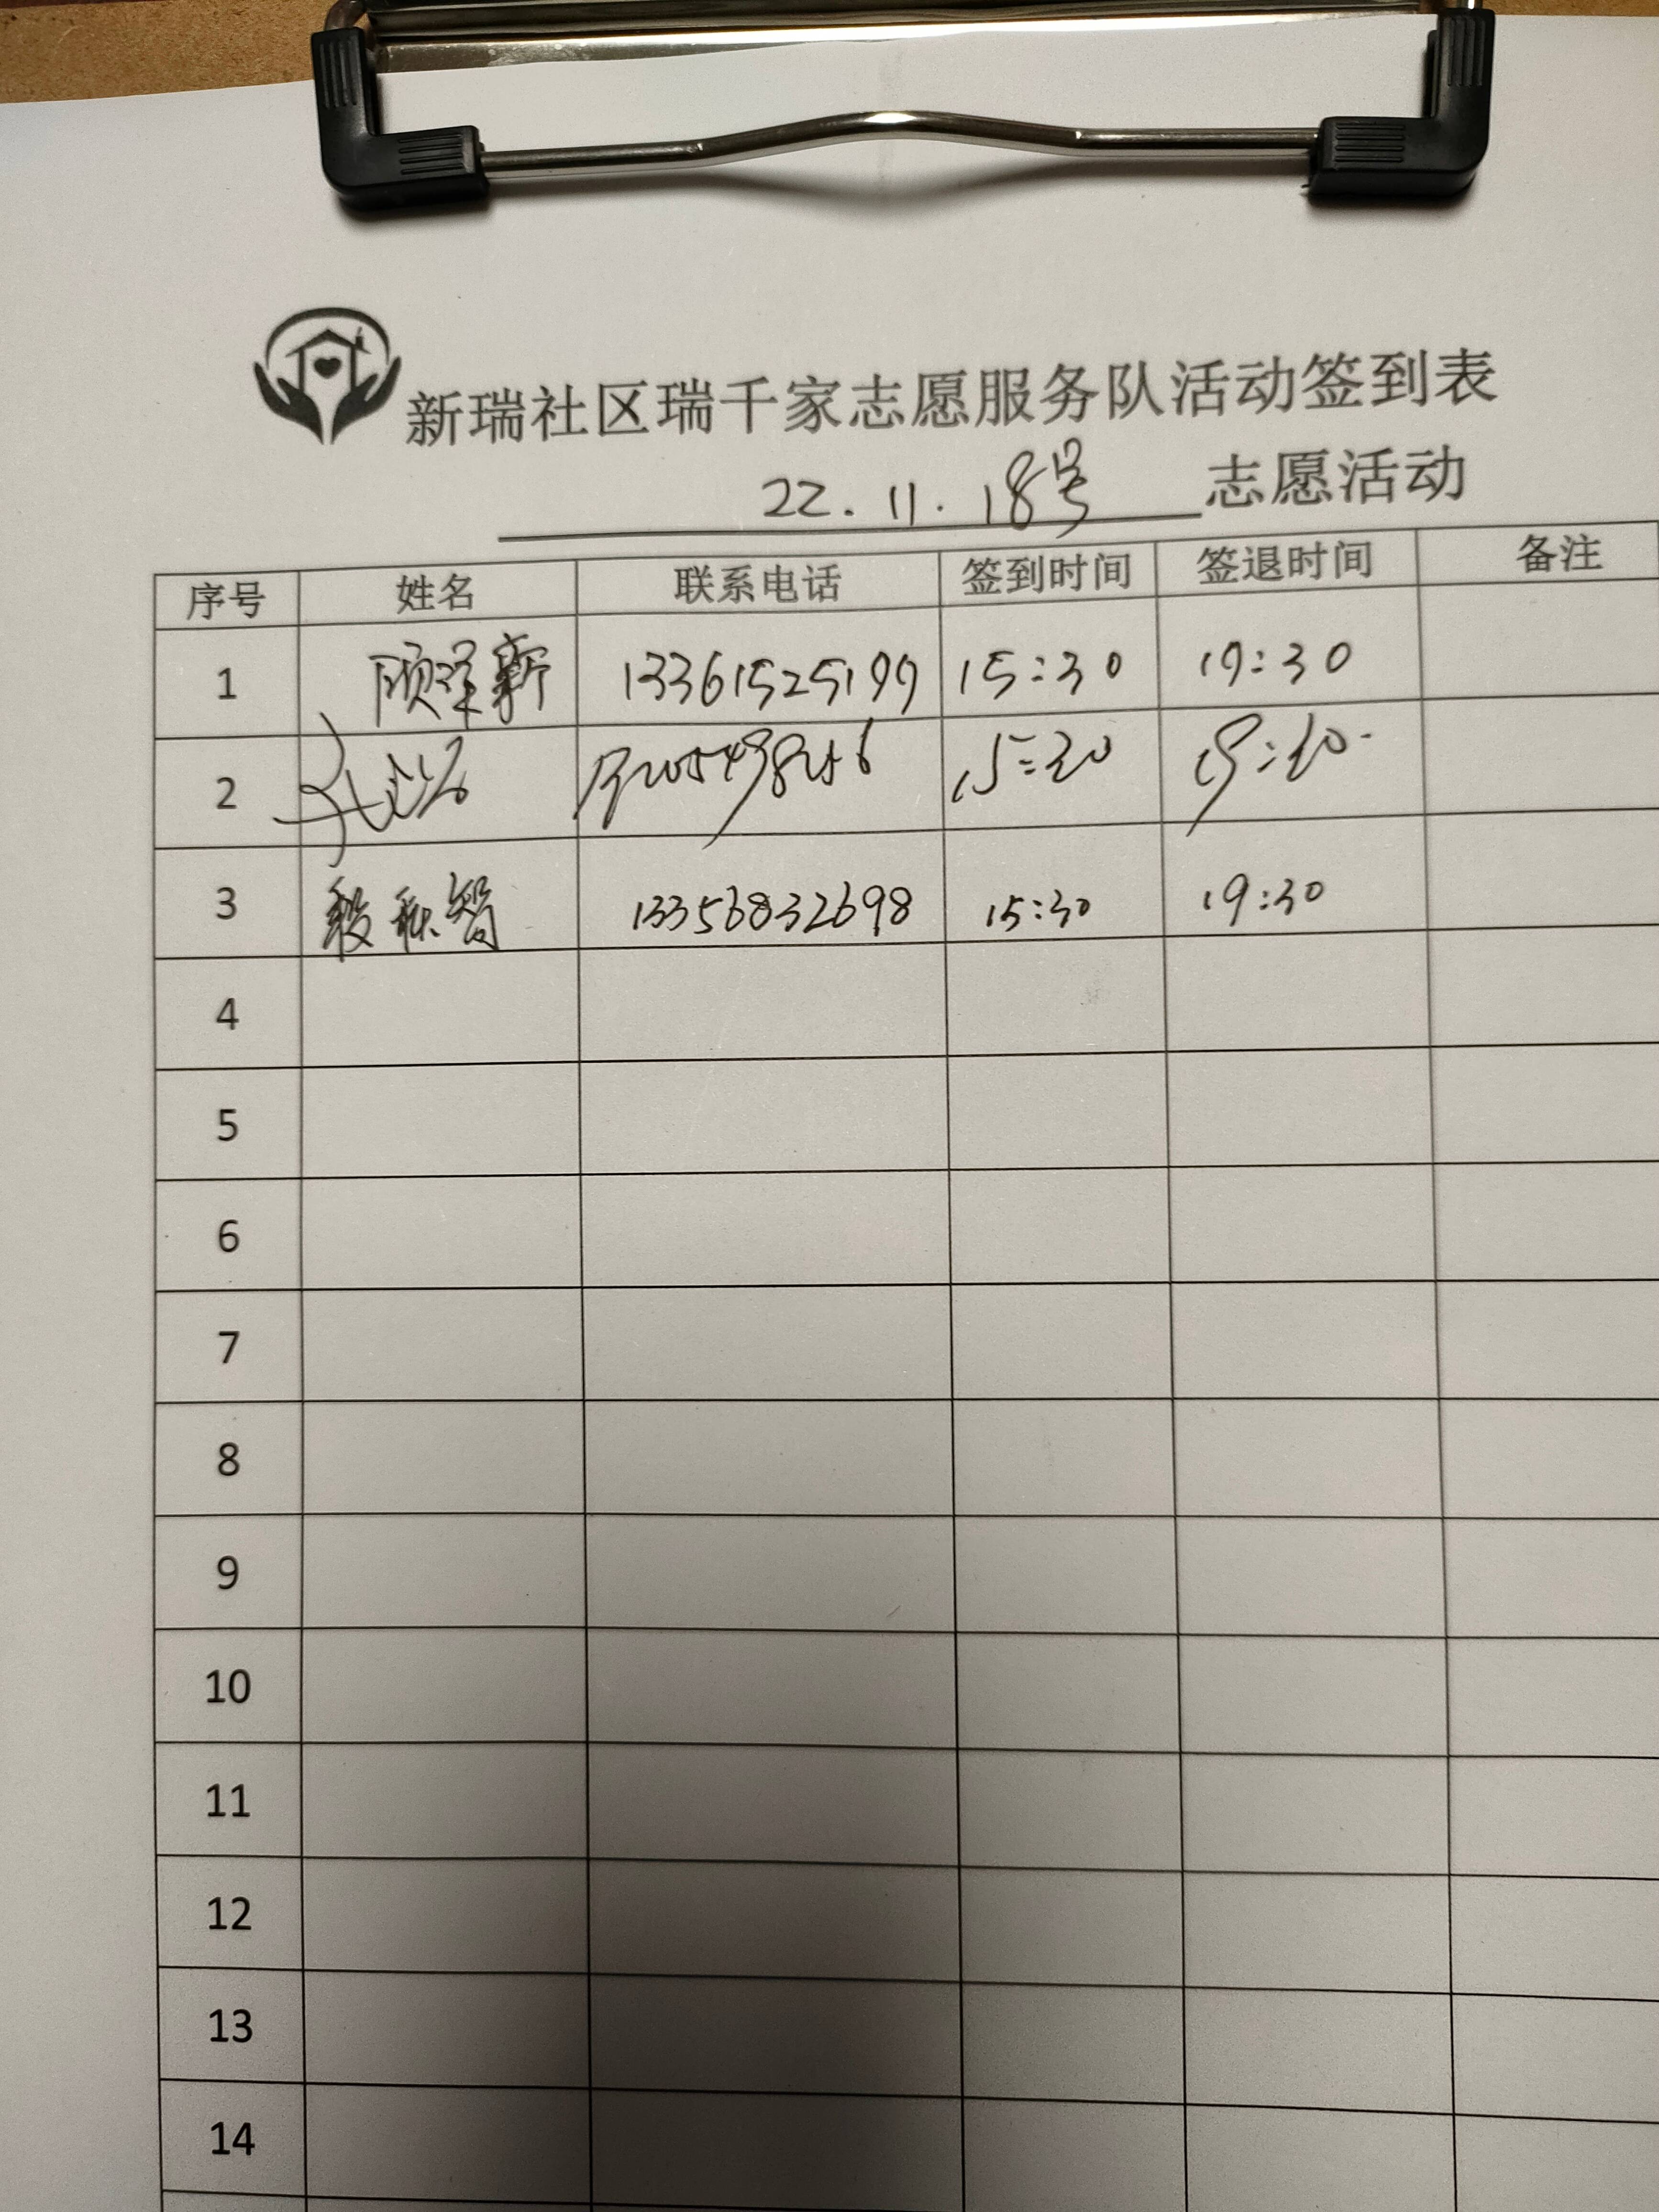 新瑞社区瑞千家志愿服务队活动签到表
22.11.18号 志愿活动
序号 姓名 联系电话 签到时间 签退时间 备注
1 顾泽新 13361525199 15:30 19:30
2 15:30 19:30
3 程秋智 13356832698 15:30 19:30
4
5
6
7
8
9
10
11
12
13
14